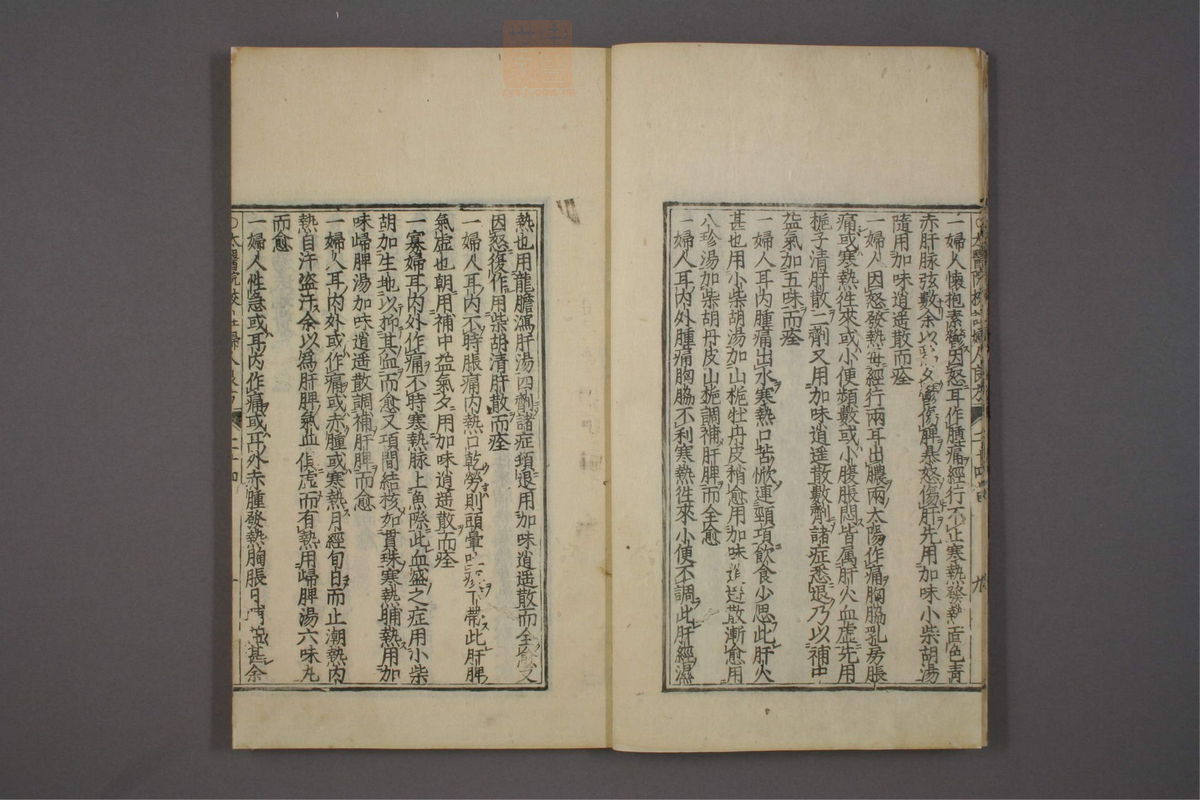 一婦人懷抱素鬱因怒耳作腫痛經行不止寒熱發熱面色青
赤肝脉弦數余以爲久鬱傷脾暴怒傷肝先用加味小柴胡湯
隨用加味逍遥散而痊
一婦人因怒發熱每經行兩耳出膿兩太陽作痛胸脇乳房脹
痛或寒熱徃來或小便頻數或小腹脹悶皆属肝火血虚先用
梔子清肝散二劑又用加味逍遥散數劑諸症悉退乃以補中
益氣加五味而痊
一婦人耳内腫痛出水寒熱口苦焮連頸項飲食少思此肝火
甚也用小柴胡湯加山梔牡丹皮稍愈用加味逍遥散漸愈用
八珍湯加柴胡丹皮山梔調補肝脾而全愈
一婦人耳内外腫痛胸脇不利寒熱徃來小便不調此肝經濕
熱也用龍膽瀉肝湯四劑諸症頓退用加味逍遥散而全愈又
因怒復作用柴胡清肝散而痊
一婦人耳内不時脹痛内熱口乾勞則頭暈吐痰下帶此肝脾
氣虚也朝用補中益氣夕用加味逍遥散而痊
一寡婦耳内外作痛不時寒熱脉上魚際此血盛之症用小柴
胡加生地以抑其血而愈又項間結核如貫珠寒熱晡熱用加
味歸脾湯加味逍遥散調補肝脾而愈
一婦人耳内外或作痛或赤腫或寒熱月經旬日而止潮熱内
熱自汗盗汗余以爲肝脾氣血俱虚而有熱用歸脾湯六味丸
而愈
一婦人性急或耳内作痛或耳外赤腫發熱脇脹日晡益甚余